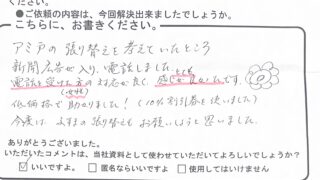 ください。
●ご依頼の内容は、今回解決出来ましたでしょうか。
こちらに、お書きください。
アミ戸の張り替えを考えていたところ
新聞広告が入り、電話しました。
電話を受けた方の対応が良く、感じが良かったです。
(女性)
とても
低価格で助かりました!(10%割引券を使いました)
今度は、ふすまの張り替えもお願いしようと思いました。
ありがとうございました。
いただいたコメントは、当社資料として使わせていただいてよろしいでしょうか?
いいですよ。 匿名ならいいですよ 使用してはいけません